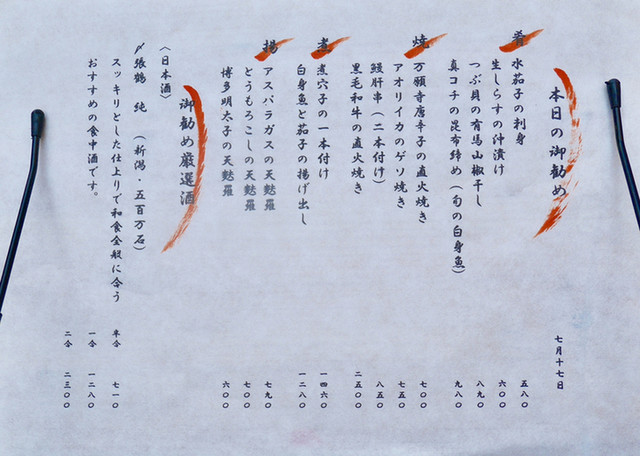 本日の御勧め 七月十七日
肴
水茄子の刺身 五八〇
生しらすの沖漬け 六〇〇
つぶ貝の有馬山椒干し 八九〇
真コチの昆布締め（旬の白身魚） 九八〇
焼
万願寺唐辛子の直火焼き 七〇〇
アオリイカのゲソ焼き 七五〇
鰻肝串（二本付け） 八五〇
黒毛和牛の直火焼き 二五〇〇
煮
煮穴子の一本付け 一四六〇
白身魚と茄子の揚げ出し 一二八〇
揚
アスパラガスの天麩羅 七九〇
とうもろこしの天麩羅 七〇〇
博多明太子の天麩羅 六〇〇
御勧め厳選酒
〈日本酒〉
〆張鶴 純 （新潟・五百万石）
スッキリとした仕上りで和食全般に合う 半合 七一〇
おすすめの食中酒です。 一合 一二八〇
二合 二三〇〇